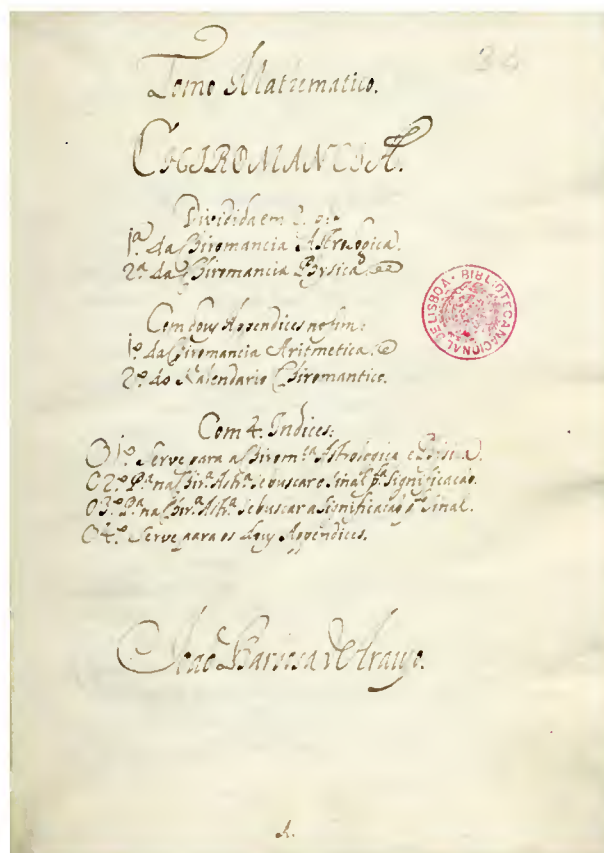 34
Tomo Mathematico.
CHIROMANCIA.
Dividida em 2. p.es
1ª. da Chiromancia Astrologica.
2ª. da Chiromancia Physica.
BIBLIOTECA NACIONAL DE LISBOA
Com dous Appendices no fim:
1º. da Chiromancia Aritmetica.
2º. do Kalendario Chiromantico.
Com 4. Indices:
O 1º. Serve para a Chirom.ᶜᵃ Astrologica e Physica.
O 2º. Pª. na Chir.ª Ast.ª se buscar o Sinal pª. Significação.
O 3º. Pª. na Chir.ª Ast.ª se buscar a Significação pº. Sinal.
O 4º. Serve para os dous Appendices.
João Barbosa de Araujo.